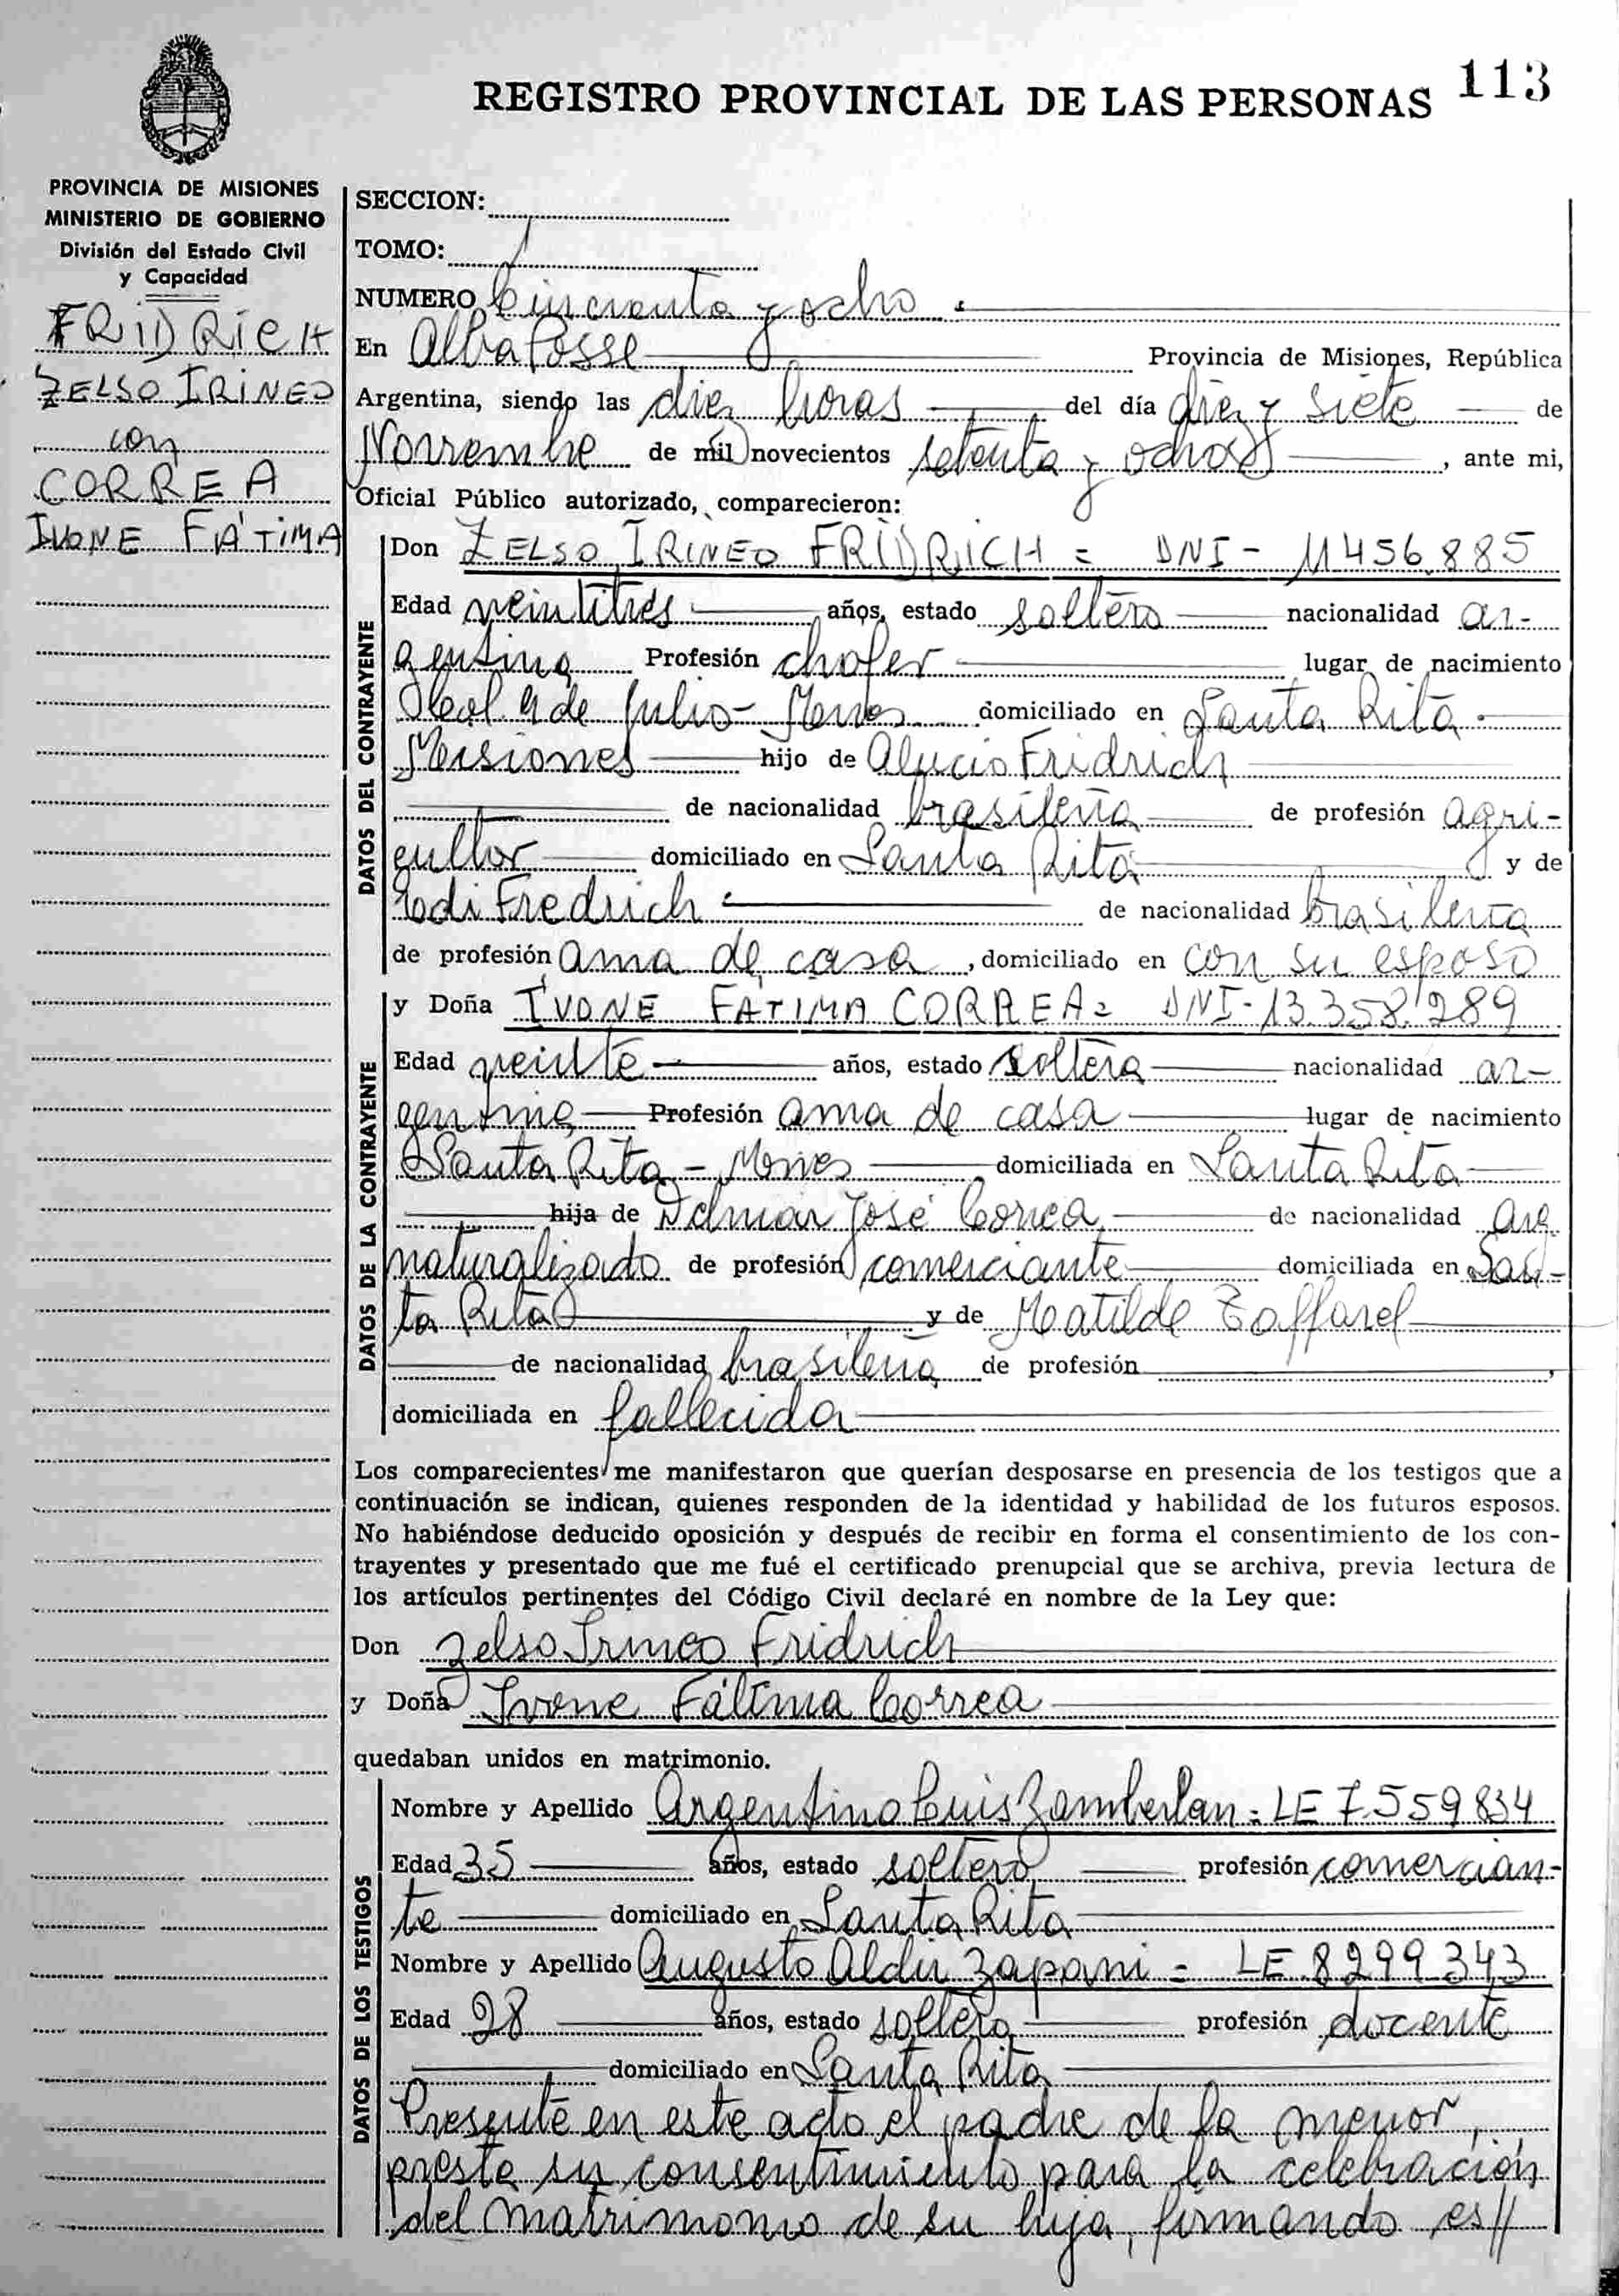 REGISTRO PROVINCIAL DE LAS PERSONAS 113
PROVINCIA DE MISIONES
MINISTERIO DE GOBIERNO
División del Estado Civil
y Capacidad
FRIDRICH
ZELSO IRINEO
con
CORREA
IVONE FÁTIMA
SECCION:
TOMO: 1
NUMERO Cincuenta y ocho
En Alba Posse Provincia de Misiones, República
Argentina, siendo las diez horas del día diez y siete de
Noviembre de mil novecientos setenta y ocho, ante mi,
Oficial Público autorizado, comparecieron:
DATOS DEL CONTRAYENTE
Don ZELSO IRINEO FRIDRICH = DNI - 11456.885
Edad veintitrés años, estado soltero nacionalidad ar-
gentina Profesión chofer lugar de nacimiento
9 de Julio - Mnes domiciliado en Santa Rita -
Misiones hijo de Alucio Fridrich
de nacionalidad brasileña de profesión agri-
cultor domiciliado en Santa Rita y de
Fredrich de nacionalidad brasileña
de profesión ama de casa, domiciliado en con su esposo
DATOS DE LA CONTRAYENTE
y Doña IVONE FATIMA CORREA = DNI - 13.358.289
Edad veinte años, estado soltera nacionalidad ar-
gentina Profesión ama de casa lugar de nacimiento
Santa Rita - Mnes domiciliada en Santa Rita
hija de José Correa, de nacionalidad Arg.
naturalizado de profesión comerciante domiciliada en San-
ta Rita y de Matilde Zaffarel
de nacionalidad brasileña de profesión ,
domiciliada en fallecida
Los comparecientes me manifestaron que querían desposarse en presencia de los testigos que a
continuación se indican, quienes responden de la identidad y habilidad de los futuros esposos.
No habiéndose deducido oposición y después de recibir en forma el consentimiento de los con-
trayentes y presentado que me fué el certificado prenupcial que se archiva, previa lectura de
los artículos pertinentes del Código Civil declaré en nombre de la Ley que:
Don Zelso Irineo Fridrich
y Doña Ivone Fátima Correa
quedaban unidos en matrimonio.
DATOS DE LOS TESTIGOS
Nombre y Apellido Argentino Luis Zamberlan = LE 7.559834
Edad 35 años, estado soltero profesión comercian-
te domiciliado en Santa Rita
Nombre y Apellido Augusto Aldir Zapani - LE 8299343
Edad 28 años, estado soltero profesión docente
domiciliado en Santa Rita
Presente en este acto el padre de la menor,
presta su consentimiento para la celebración
del matrimonio de su hija, firmando es//